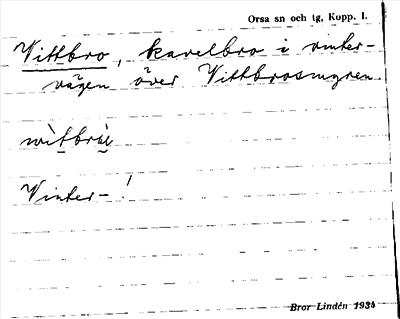 Orsa sn och tg, Kopp. l.
Vittbro, kavelbro i vinter-
vägen över Vittbrosmyren.
Vinter- !
Bror Lindén 1934